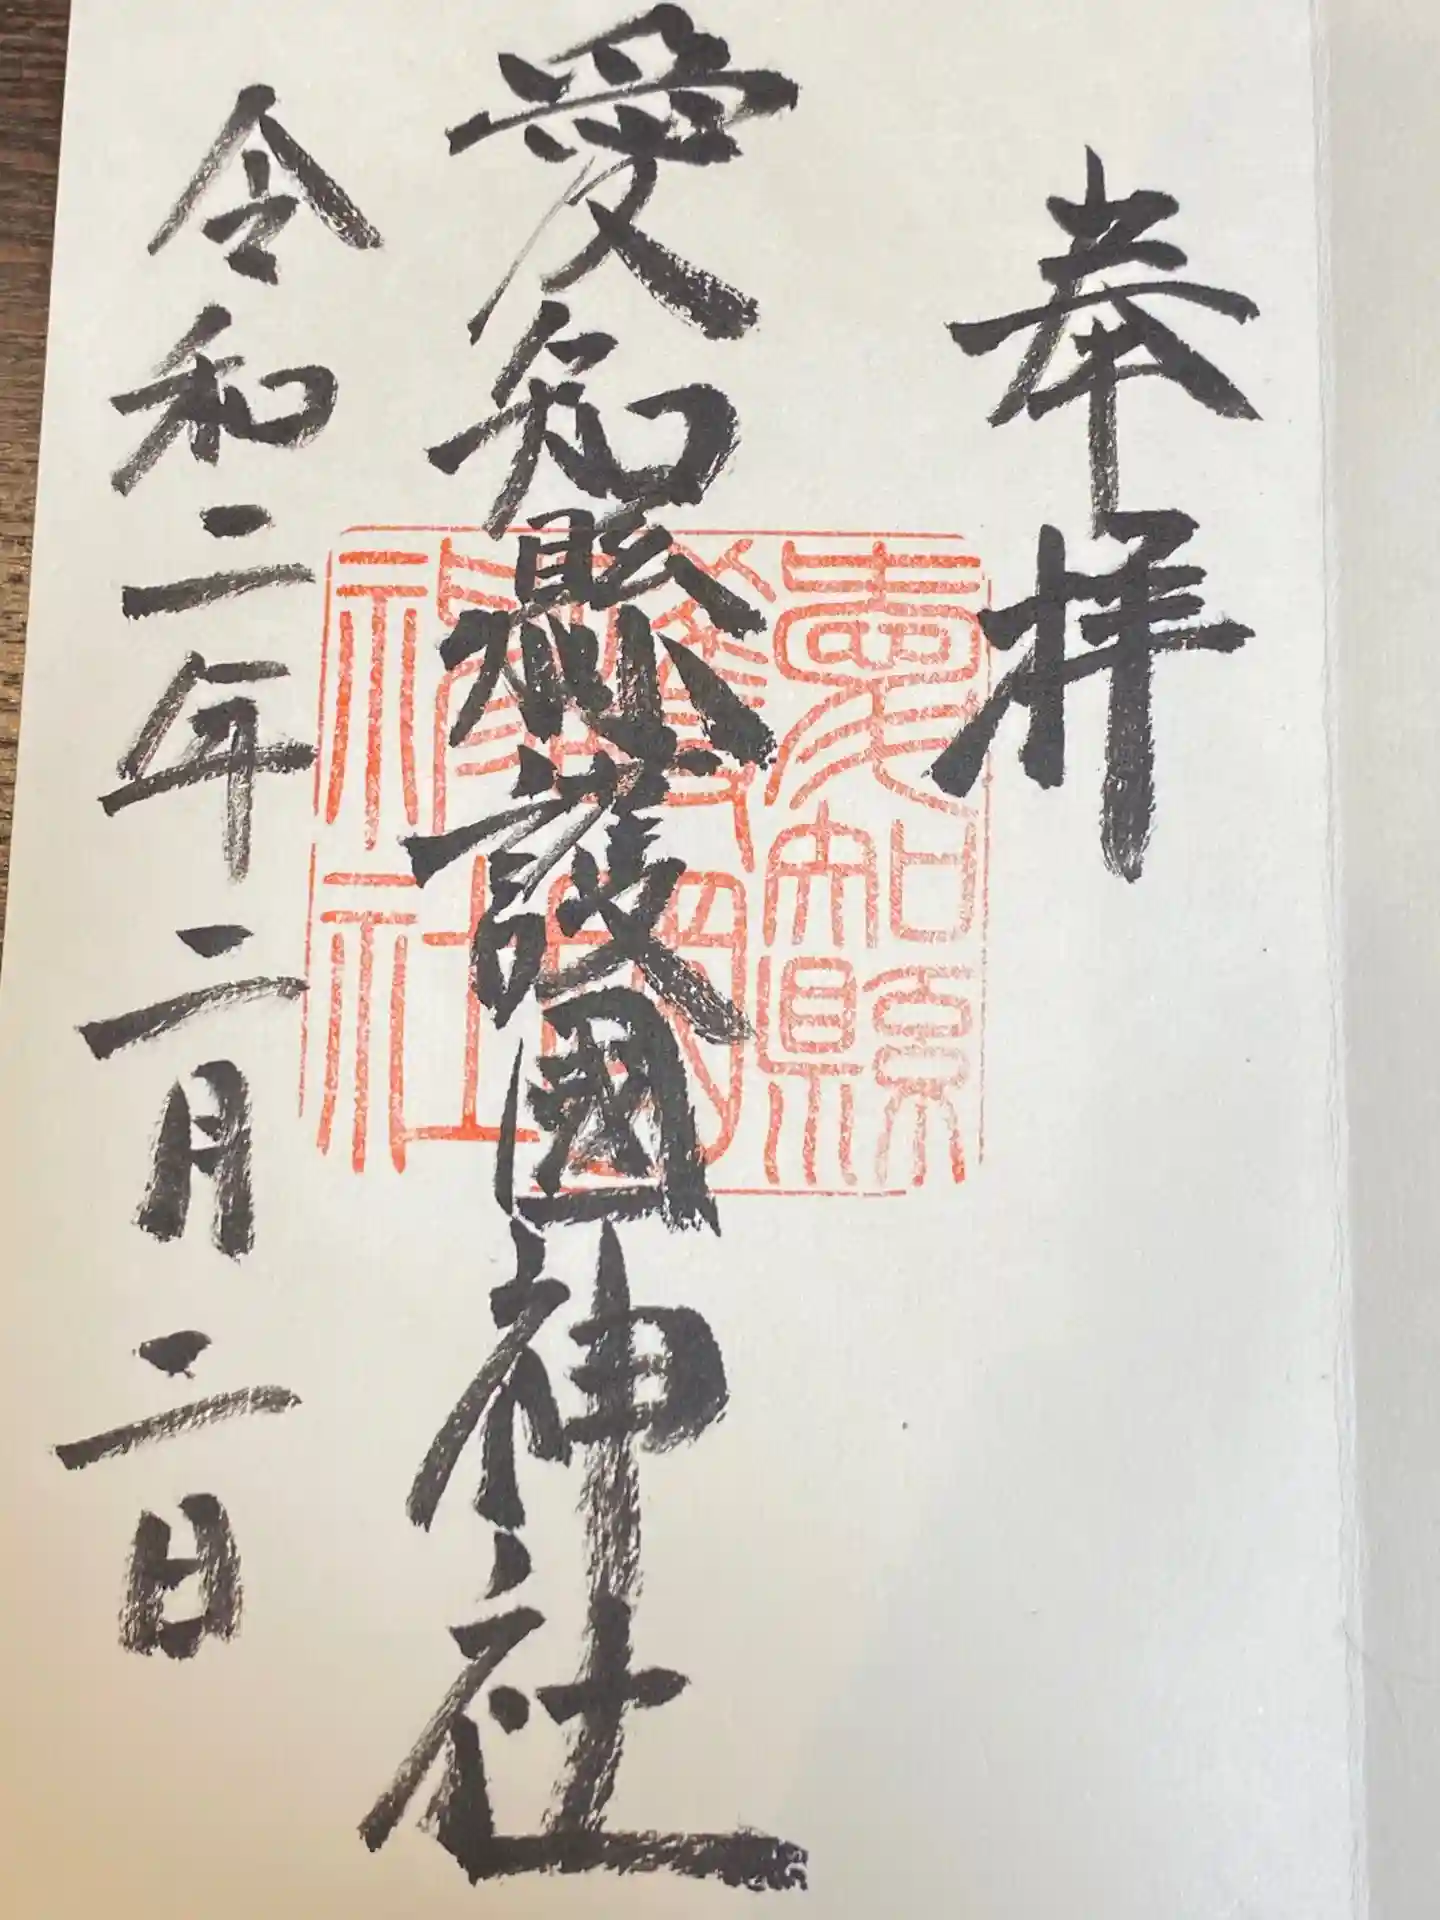 奉拝
愛知縣護國神社
愛知縣護國神社
令和二年二月二日